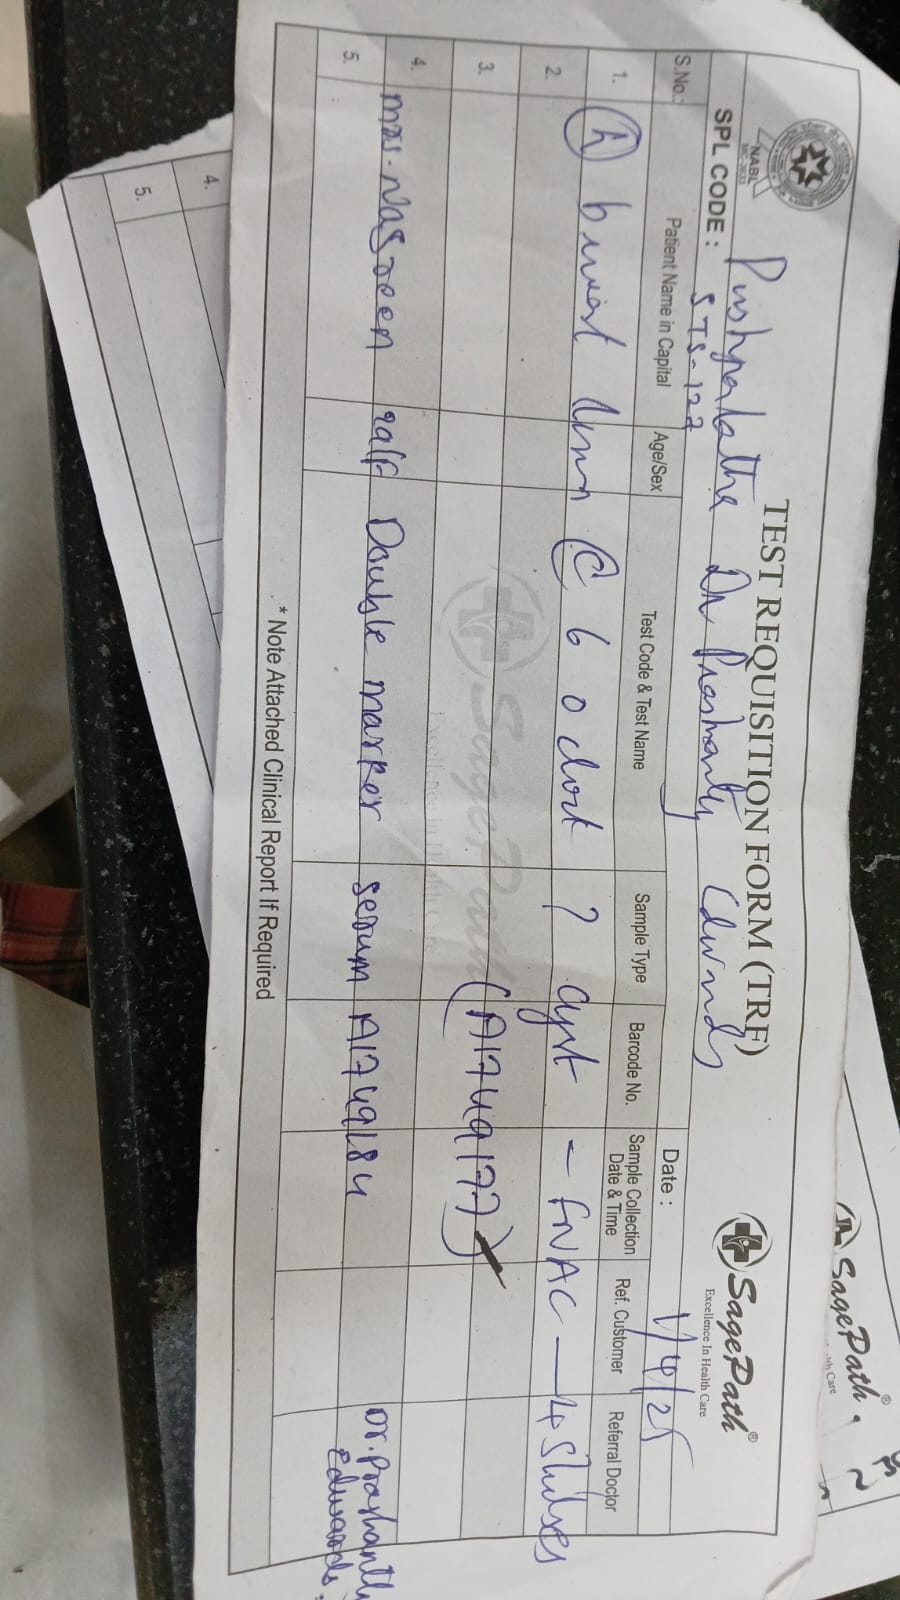 TEST REQUISITION FORM (TRF)
SagePath®
Excellence In Health Care
NABL
SPL CODE :
STS-127
Date : 1/4/25
S.No. Patient Name in Capital Age/Sex Test Code & Test Name Sample Type Barcode No. Sample Collection Date & Time Ref. Customer Referral Doctor
1.
2.
breast @ 6 o clock ? cyst - FNAC - 4 Slides
3.
(A1749177)
4.
Mrs. Nasreen 29/F Double marker serum A1749184 Dr. Prashanthi Edwards.
5.
* Note Attached Clinical Report If Required
4.
5.
SagePath®